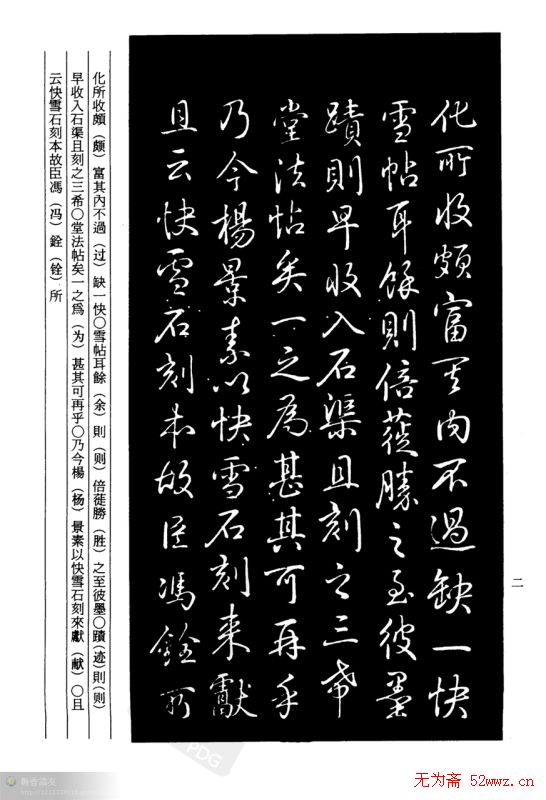 化所收頗富其内不過缺一快
雪帖耳餘則倍蓰勝之至彼墨
蹟則早收入石渠且刻之三希
堂法帖矣一之為甚其可再乎
乃今楊景素以快雪石刻来獻
且云快雪石刻本故臣馮銓所
二
化所收頗（颇）富其內不過（过）缺一快○雪帖耳餘（余）則（则）倍蓰勝（胜）之至彼墨○蹟（迹）則（则）
早收入石渠且刻之三希○堂法帖矣一之爲（为）甚其可再乎○乃今楊（杨）景素以快雪石刻來獻（献）○且
云快雪石刻本故臣馮（冯）銓（铨）所
PDG
无为斋 52wwz.cn